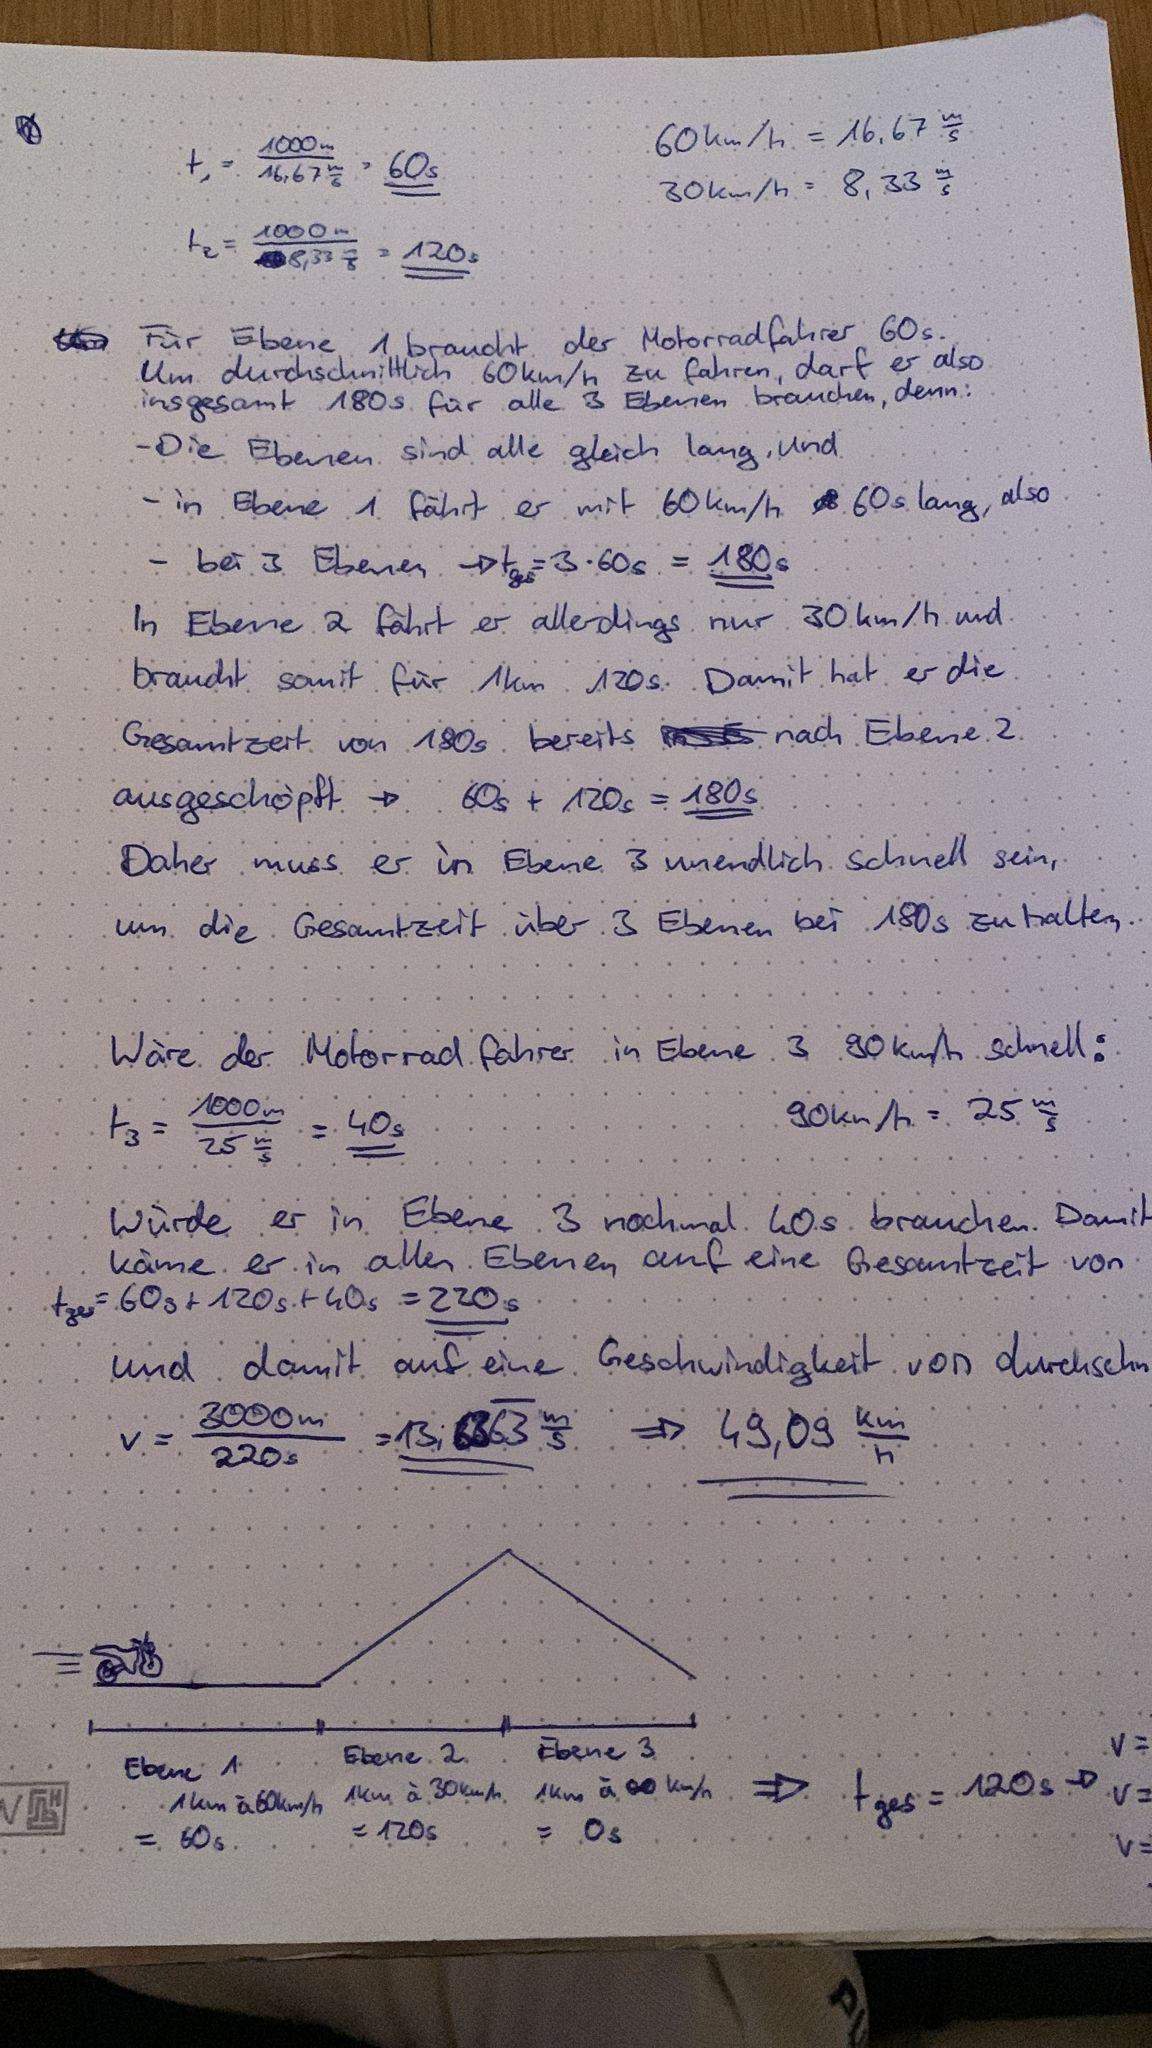 t₁ = 1000m / 16,67 m/s = 60s
60km/h = 16,67 m/s
30km/h = 8,33 m/s
t₂ = 1000m / 8,33 m/s = 120s
Für Ebene 1 braucht der Motorradfahrer 60s.
Um durchschnittlich 60km/h zu fahren, darf er also
insgesamt 180s für alle 3 Ebenen brauchen, denn:
- Die Ebenen sind alle gleich lang, und
- in Ebene 1 fährt er mit 60km/h 60s lang, also
- bei 3 Ebenen → t ges = 3·60s = 180s
In Ebene 2 fährt er allerdings nur 30km/h und
braucht somit für 1km 120s. Damit hat er die
Gesamtzeit von 180s bereits nach Ebene 2
ausgeschöpft → 60s + 120s = 180s
Daher muss er in Ebene 3 unendlich schnell sein,
um die Gesamtzeit über 3 Ebenen bei 180s zu halten.
Wäre der Motorradfahrer in Ebene 3 90km/h schnell:
t₃ = 1000m / 25 m/s = 40s
90km/h = 25 m/s
Würde er in Ebene 3 nochmal 40s brauchen. Damit
käme er in allen Ebenen auf eine Gesamtzeit von
t ges = 60s + 120s + 40s = 220s
und damit auf eine Geschwindigkeit von durchschn
v = 3000m / 220s = 13,6363 m/s ⇒ 49,09 km/h
Ebene 1 Ebene 2 Ebene 3
1km à 60km/h 1km à 30km/h 1km à ∞ km/h ⇒ t ges = 120s →
= 60s = 120s = 0s
v=
v=
v=